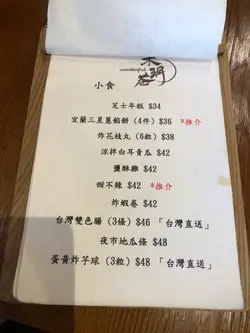 wonderful
小食
芝士年糕 $34
宜蘭三星蔥餡餅 (4件) $36 *推介
炸花枝丸 (6粒) $38
涼拌白耳青瓜 $42
鹽酥雞 $42
甜不辣 $42 *推介
炸蝦卷 $42
台灣雙色腸 (3條) $46 「台灣直送」
夜市地瓜條 $48
蛋黃炸芋球 (3粒) $48 「台灣直送」